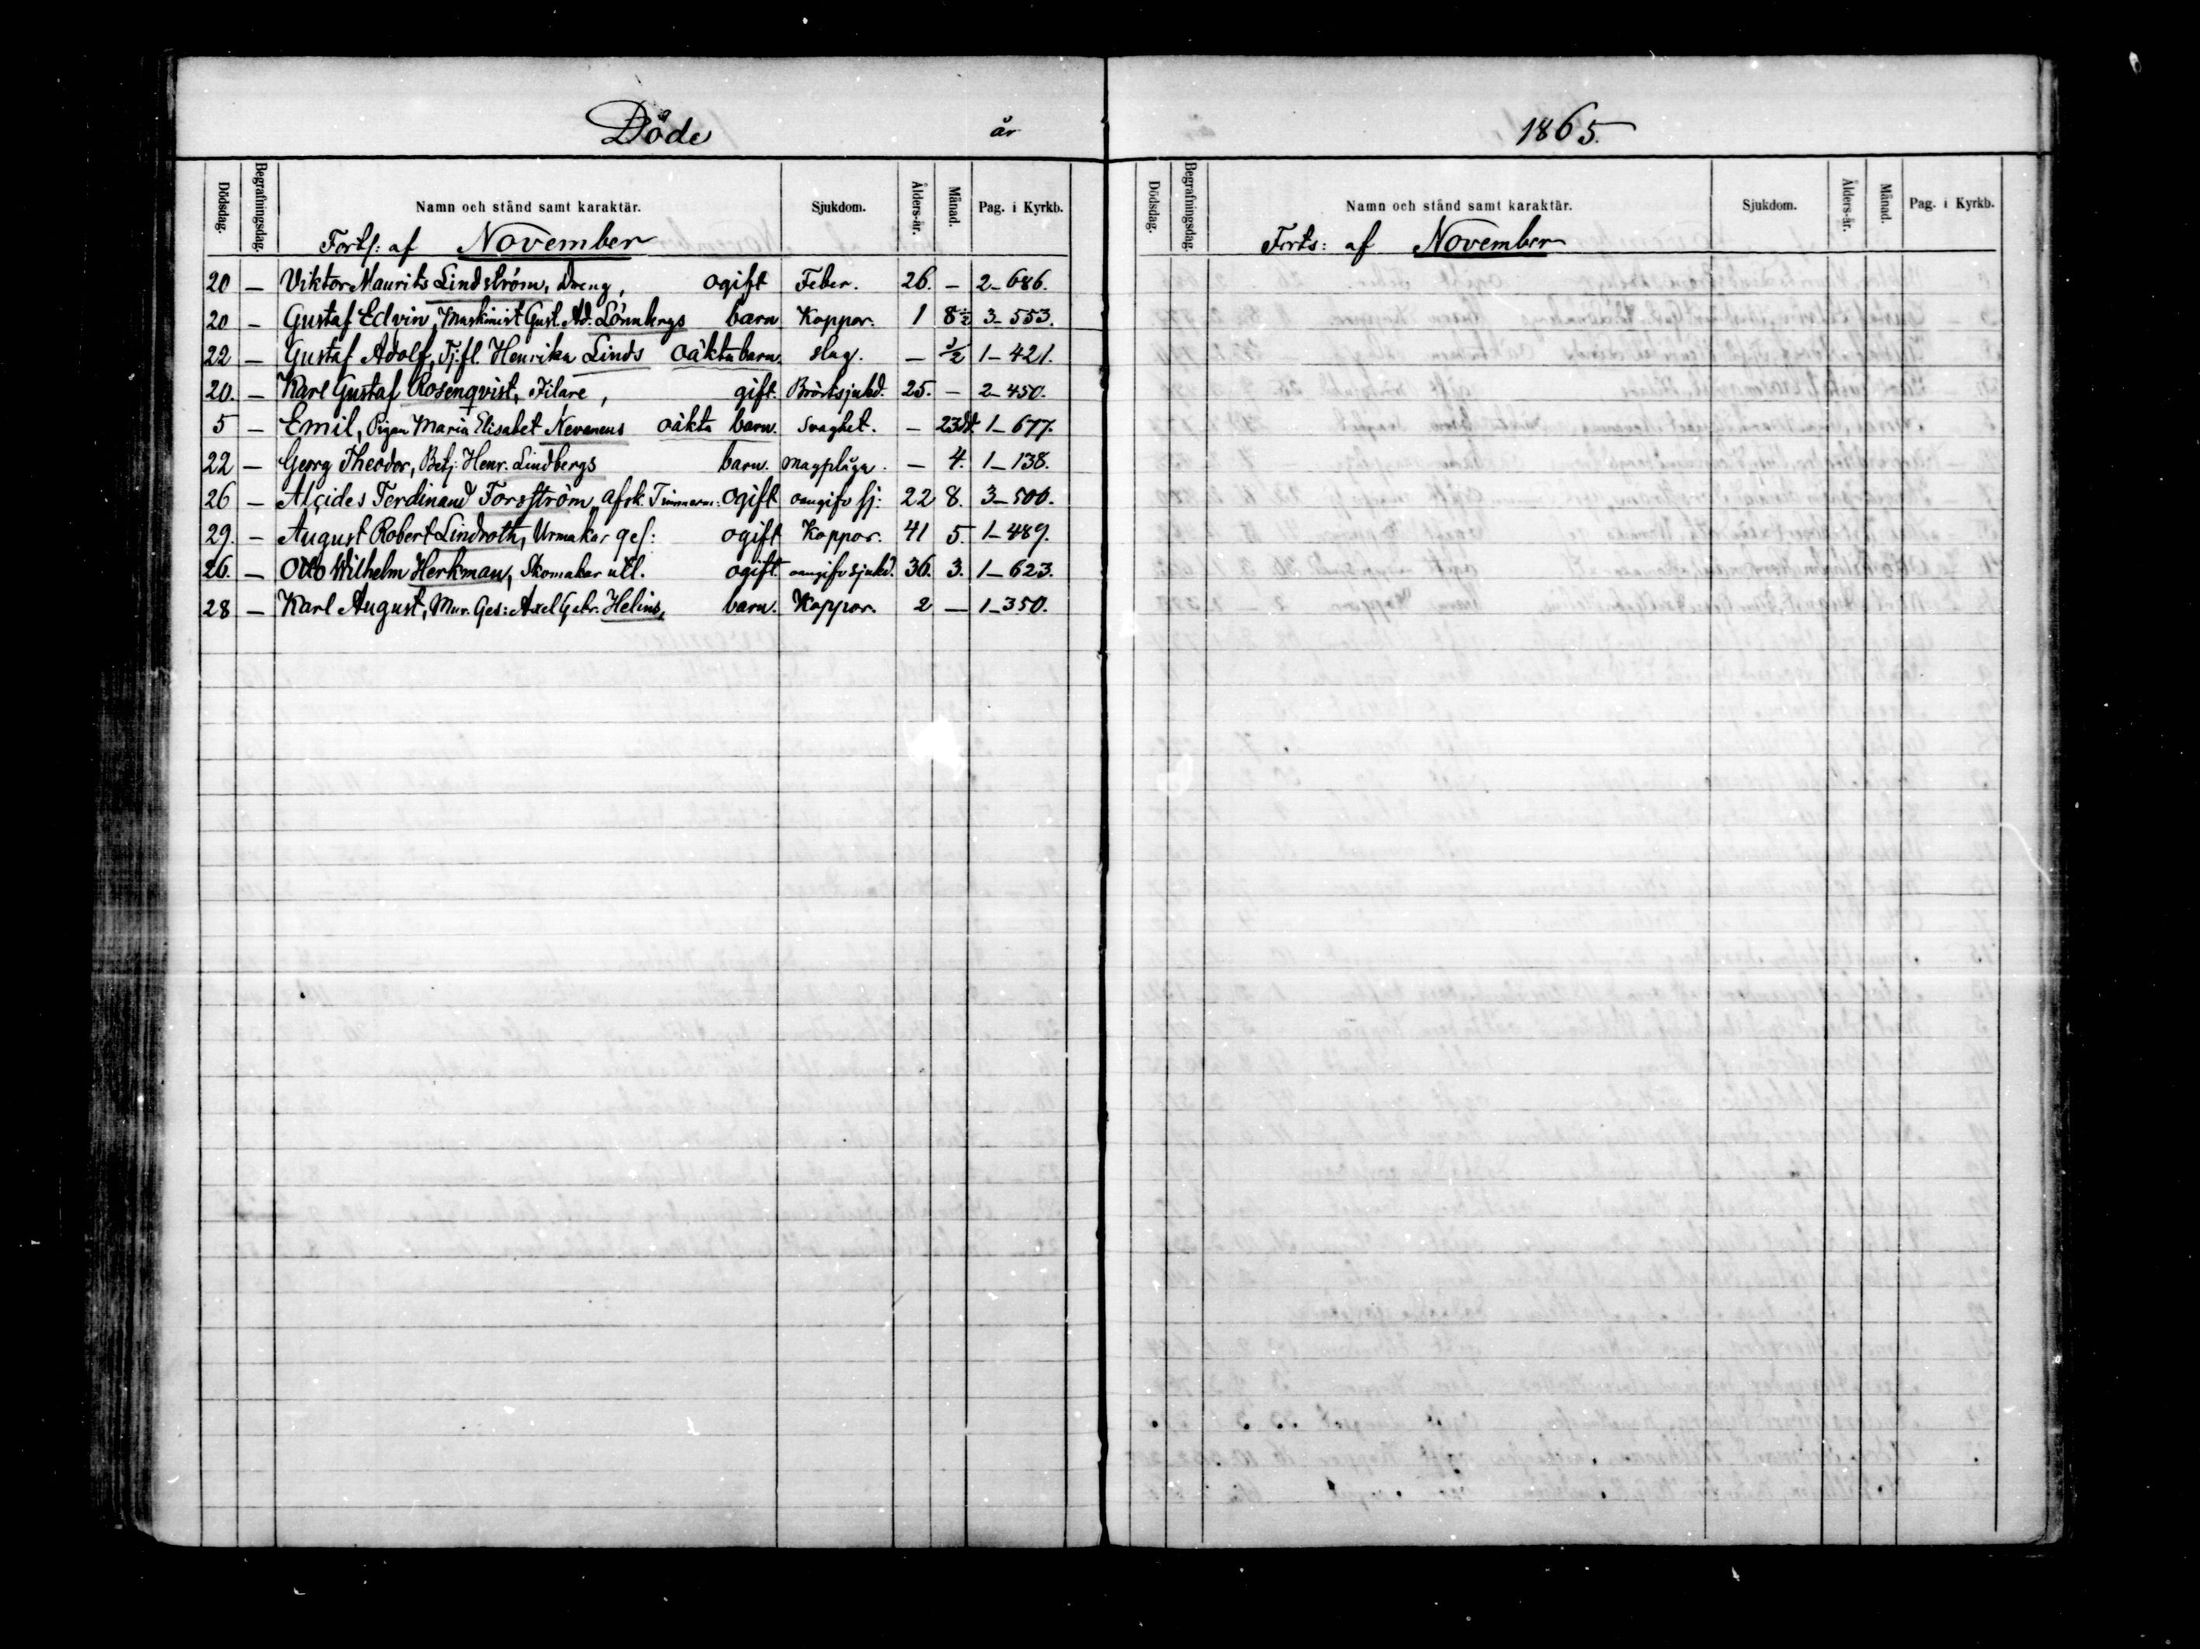 Döde år 1865.
Dödsdag. Begrafningsdag. Namn och stånd samt karaktär. Sjukdom. Ålders-år. Månad. Pag. i Kyrkb.
Forts: af November
20 — Viktor Maurits Lindström, Dreng, ogift Feber. 26. — 2-686.
20 — Gustaf Edvin, Maskinist Gust. Ad. Lönnbergs barn Koppor. 1 8½ 3-553.
22 — Gustaf Adolf, Tj.fl. Henrika Linds oäkta barn slag. — ½ 1-421.
20. — Karl Gustaf Rosenqvist, Filare, gift. Bröstsjukd. 25. — 2-450.
5 — Emil, Pigan Maria Elisabet Nevanens oäkta barn. Svaghet. — 23 dt. 1-677.
22 — Georg Theodor, Betj: Henr. Lindbergs barn. Magplåga. — 4. 1-138.
26 — Alçides Ferdinand Forsström, afsk. Timmerm: ogift oangifv sj: 22 8. 3-506.
29. — August Robert Lindroth, Urmakar ges: ogift Koppor. 41 5. 1-489.
26. — Otto Wilhelm Herkman, Skomakar utl. ogift. oangifv sjukd. 36. 3. 1-623.
28 — Karl August, Mur. Ges: Axel Gabr. Helins, barn. Koppor. 2 — 1-350.
Dödsdag. Begrafningsdag. Namn och stånd samt karaktär. Sjukdom. Ålders-år. Månad. Pag. i Kyrkb.
Forts: af November